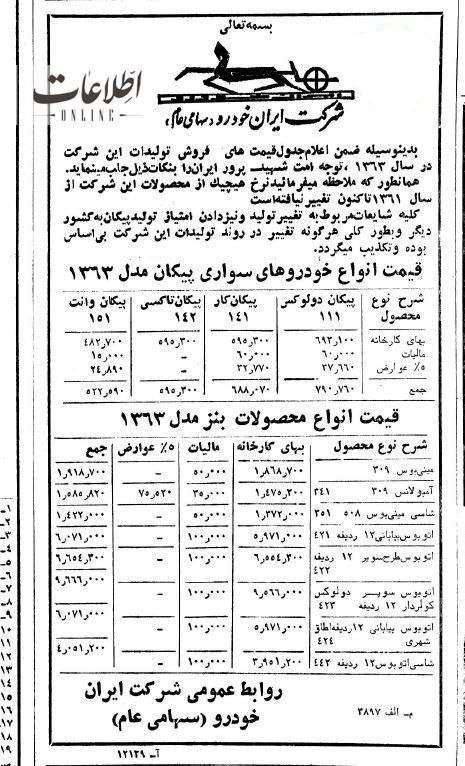 بسمه تعالی
اطلاعات
ONLINE
شرکت ایران خودرو (سهامی عام)
بدینوسیله ضمن اعلام جدول قیمت های فروش تولیدات این شرکت
در سال ۱۳۶۳، توجه امت شهید پرور ایران را بنکات ذیل جلب مینماید.
همانطور که ملاحظه میفرمائید نرخ هیچیک از محصولات این شرکت از
سال ۱۳۶۱ تاکنون تغییر نیافته است
کلیه شایعات مربوط به تغییر تولید و نیز دادن امتیاز تولید پیکان به کشور
دیگر و بطور کلی هرگونه تغییر در روند تولیدات این شرکت بی اساس
بوده و تکذیب میگردد.
قیمت انواع خودروهای سواری پیکان مدل ۱۳۶۳
شرح نوع محصول پیکان دولوکس ۱۱۱ پیکان کار ۱۴۱ پیکان تاکسی ۱۴۲ پیکان وانت ۱۵۱
بهای کارخانه ۶۹۳٫۱۰۰ ۵۹۵٫۳۰۰ ۵۹۵٫۳۰۰ ۴۸۲٫۷۰۰
مالیات ۶۰٫۰۰۰ ۶۰٫۰۰۰ – ۱۵٫۰۰۰
۵٪ عوارض ۳۷٫۶۶۰ ۳۲٫۷۷۰ – ۲۴٫۸۹۰
جمع ۷۹۰٫۷۶۰ ۶۸۸٫۰۷۰ ۵۹۵٫۳۰۰ ۵۲۲٫۵۹۰
قیمت انواع محصولات بنز مدل ۱۳۶۳
شرح نوع محصول بهای کارخانه مالیات ۵٪ عوارض جمع
مینی بوس ۳۰۹ ۱٫۸۶۸٫۷۰۰ ۵۰٫۰۰۰ – ۱٫۹۱۸٫۷۰۰
آمبولانس ۳۰۹ ۳۴۱ ۱٫۴۷۵٫۳۰۰ ۳۵٫۰۰۰ ۷۵٫۵۲۰ ۱٫۵۸۵٫۸۲۰
شاسی مینی بوس ۵۰۸ ۳۵۱ ۱٫۳۷۲٫۰۰۰ ۵۰٫۰۰۰ – ۱٫۴۲۲٫۰۰۰
اتوبوس بیابانی ۱۲ ردیفه ۴۲۱ ۵٫۹۷۱٫۰۰۰ ۱۰۰٫۰۰۰ – ۶٫۰۷۱٫۰۰۰
اتوبوس طرح سوپر ۱۲ ردیفه ۴۲۲ ۶٫۵۵۴٫۳۰۰ ۱۰۰٫۰۰۰ – ۶٫۶۵۴٫۳۰۰
اتوبوس سوپر دولوکس کولردار ۱۲ ردیفه ۴۲۳ ۹٫۵۶۶٫۰۰۰ ۱۰۰٫۰۰۰ – ۹٫۶۶۶٫۰۰۰
اتوبوس بیابانی ۱۲ ردیفه اطاق شهری ۴۲۴ ۵٫۹۷۱٫۰۰۰ ۱۰۰٫۰۰۰ – ۶٫۰۷۱٫۰۰۰
شاسی اتوبوس ۱۲ ردیفه ۴۴۲ ۳٫۹۵۱٫۲۰۰ ۱۰۰٫۰۰۰ – ۴٫۰۵۱٫۲۰۰
روابط عمومی شرکت ایران
خودرو (سهامی عام)
م ـ الف ۳۸۹۷
آ ـ ۱۲۱۲۹